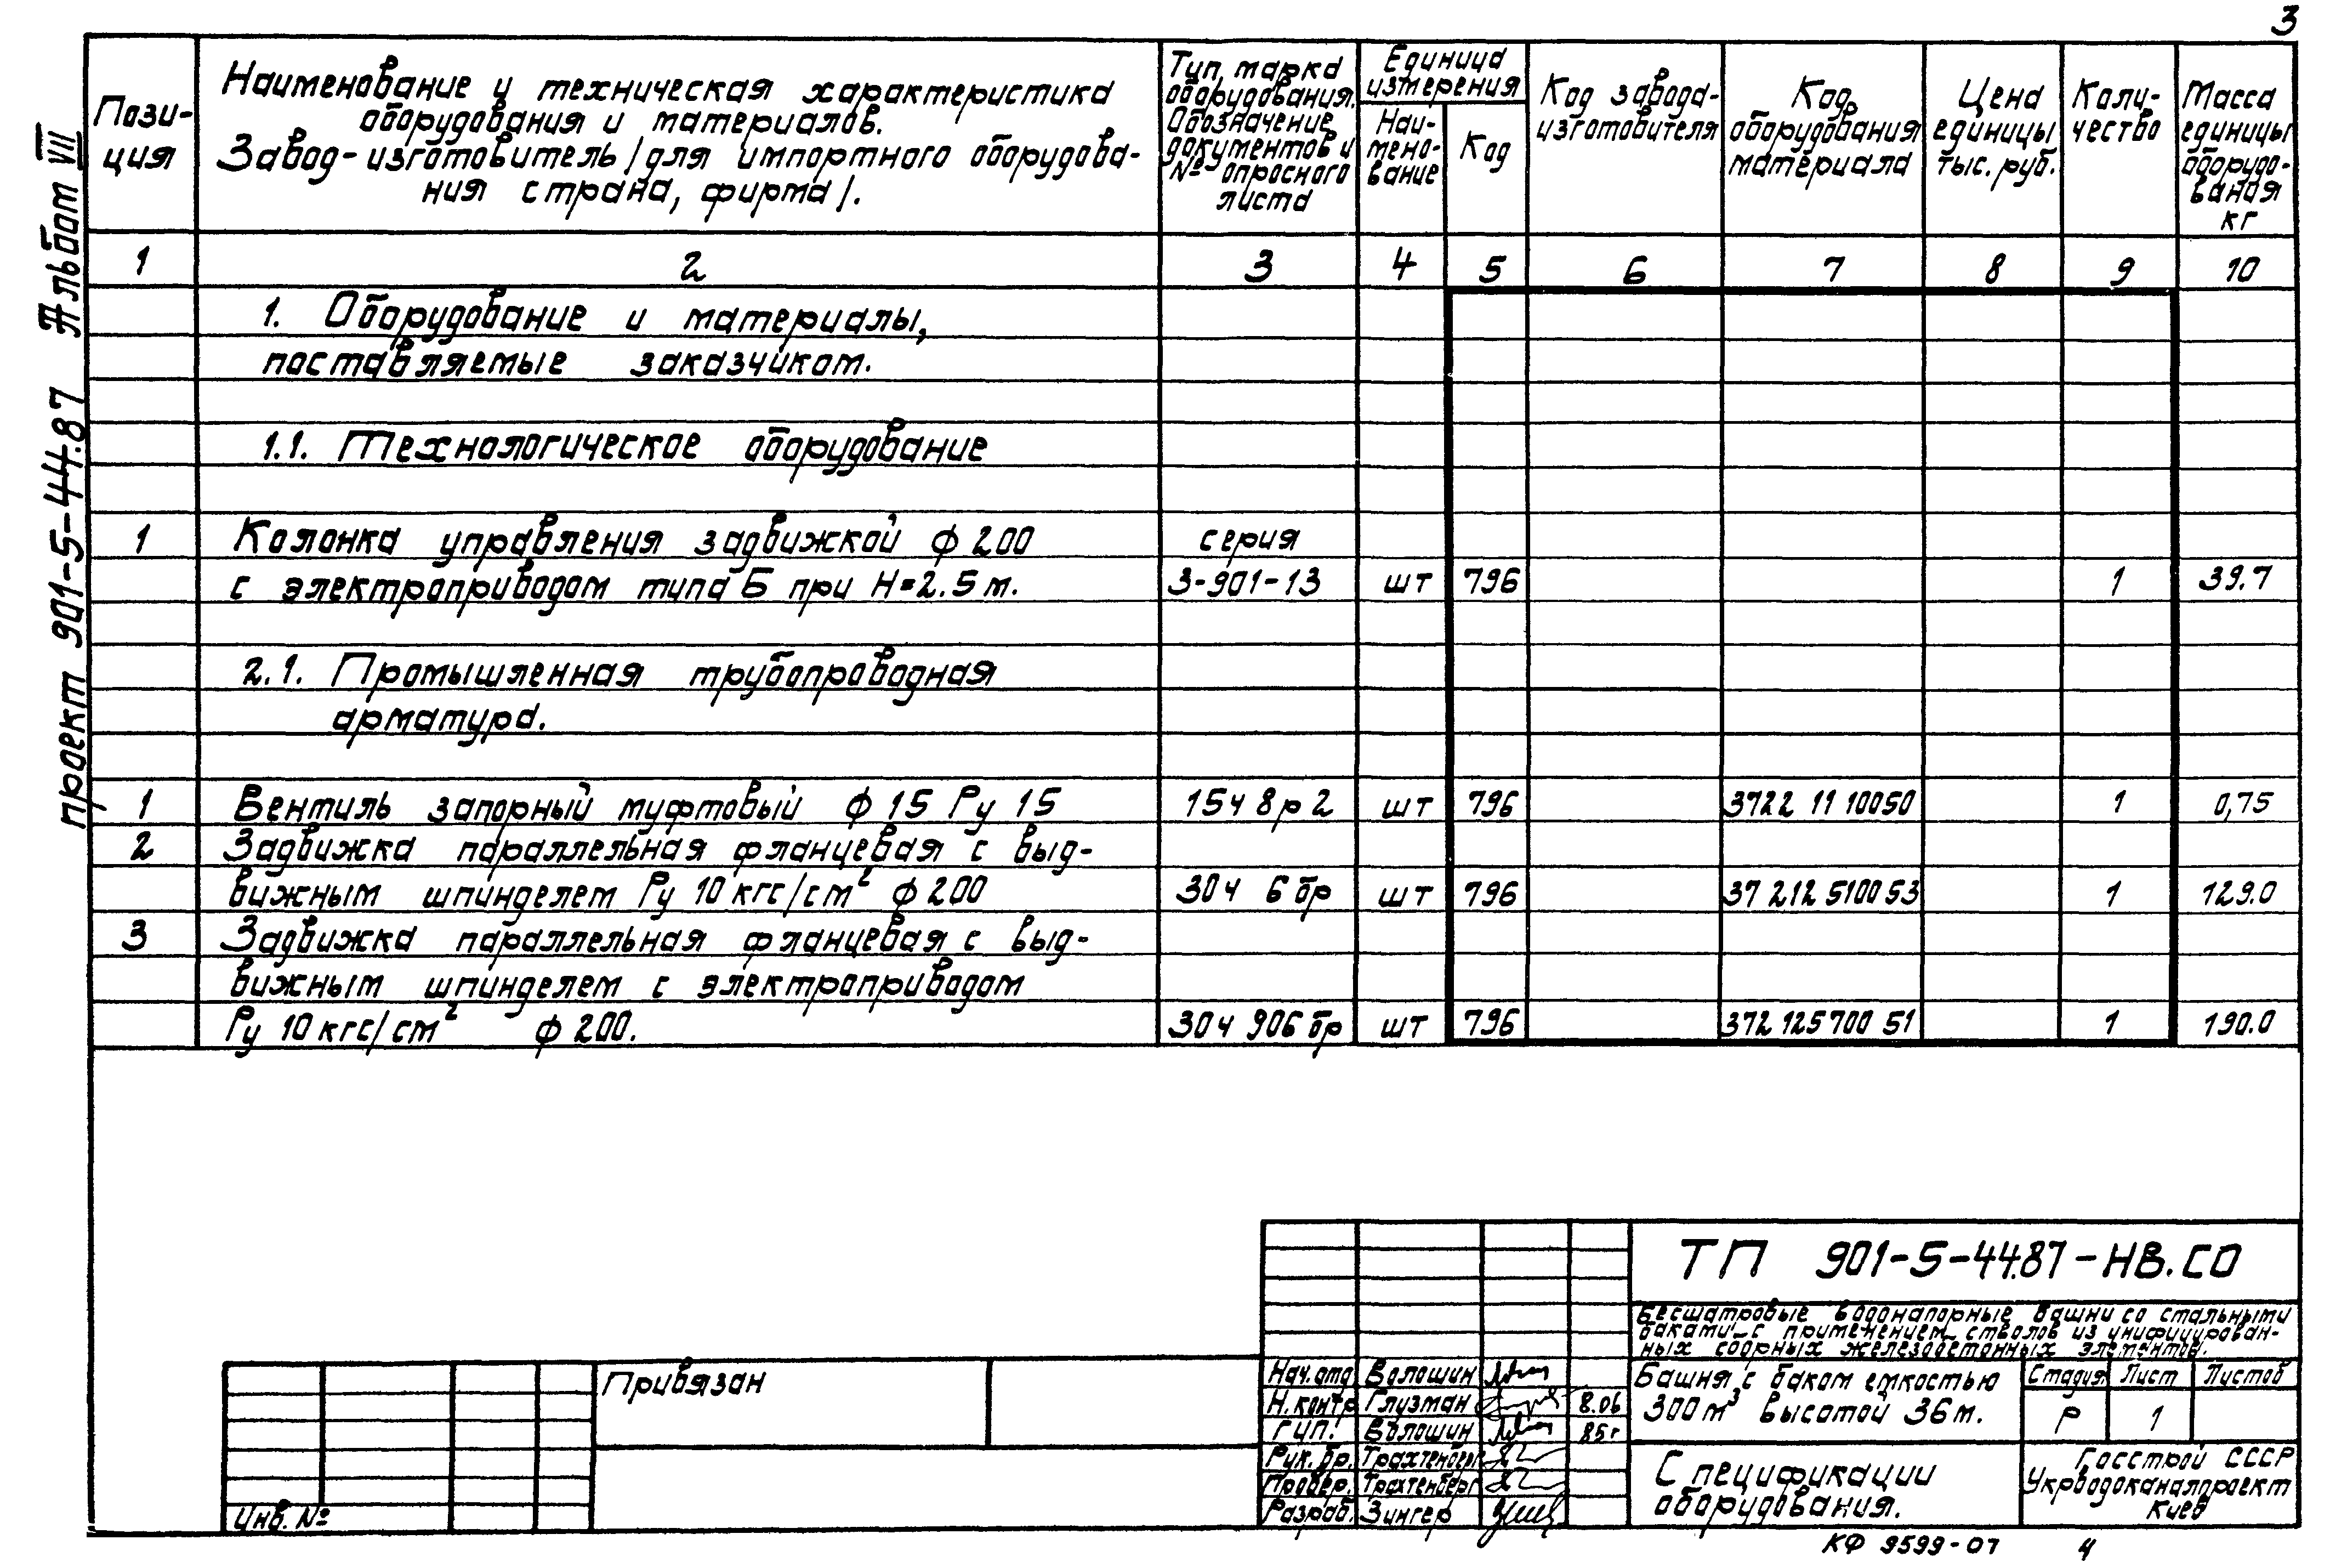 3
проект 901-5-44.87 Альбом VII
Пози-
ция
Наименование и техническая характеристика
оборудования и материалов.
Завод-изготовитель /для импортного оборудова-
ния страна, фирма/.
Тип, марка
оборудования.
Обозначение
документов и
№ опросного
листа
Единица
измерения
Наи-
мено-
вание
Код
Код завода-
изготовителя
Код
оборудования
материала
Цена
единицы
тыс. руб.
Коли-
чество
Масса
единицы
оборудо-
вания
кг
1 2 3 4 5 6 7 8 9 10
1. Оборудование и материалы,
поставляемые заказчиком.
1.1. Технологическое оборудование
1 Колонка управления задвижкой ф 200 серия
с электроприводом типа Б при Н=2.5 м. 3-901-13 шт 796 1 39.7
2.1. Промышленная трубопроводная
арматура.
1 Вентиль запорный муфтовый ф 15 Ру 15 15ч 8р2 шт 796 3722 11 10050 1 0,75
2 Задвижка параллельная фланцевая с выд-
вижным шпинделем Ру 10 кгс/см² ф 200 30ч 6 бр шт 796 37 212 5100 53 1 129.0
3 Задвижка параллельная фланцевая с выд-
вижным шпинделем с электроприводом
Ру 10 кгс/см² ф 200. 30ч 906 бр шт 796 372 125 700 51 1 190.0
ТП 901-5-44.87-НВ.СО
Бесшатровые водонапорные башни со стальными
баками с применением стволов из унифицирован-
ных сборных железобетонных элементов.
Башня с баком емкостью
300 м³ высотой 36 м.
Стадия Лист Листов
Р 1
Спецификации
оборудования.
Госстрой СССР
Укрводоканалпроект
Киев
Нач. отд Волошин
Н. контр Глузман 8.06
ГИП. Волошин 85 г
Рук. бр. Трахтенберг
Провер. Трахтенберг
Разраб. Зингер
Привязан
Инв. №
КФ 9599-07 4